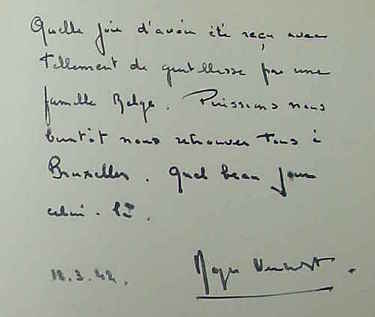 Quelle joie d'avoir été reçu avec
tellement de gentillesse par une
famille Belge. Puissions nous
bientôt nous retrouver tous à
Bruxelles. Quel beau jour
celui-là.
18.3.42.
Roger